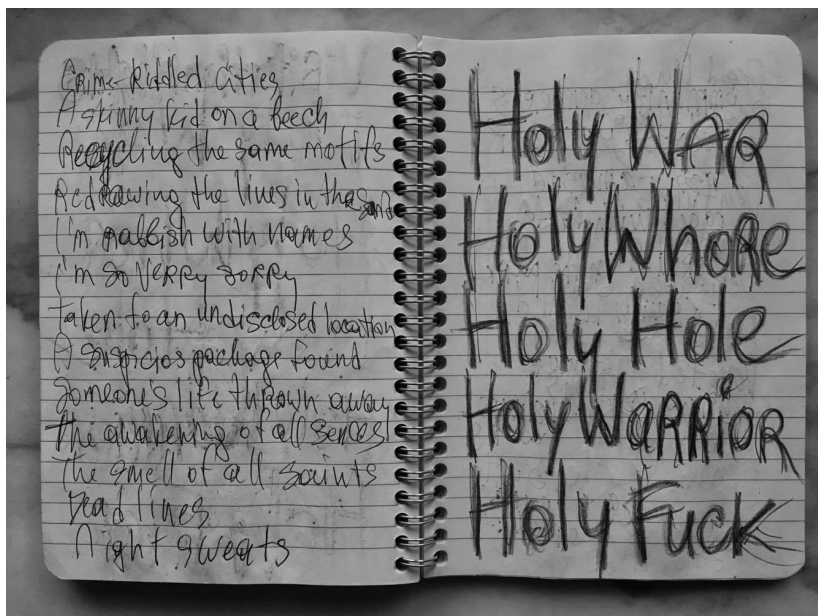 Crime-Riddled Cities
A skinny kid on a beech
Recycling the same motifs
Redrawing the lines in the sand
I'm rabbish with names
I'm so verry sorry
Taken to an undisclosed location
A suspicios package found
Someone's life thrown away
The awakening of all senses
The smell of all saints
Dead lines
Night sweats
Holy WAR
Holy Whore
Holy Hole
Holy Warrior
Holy Fuck